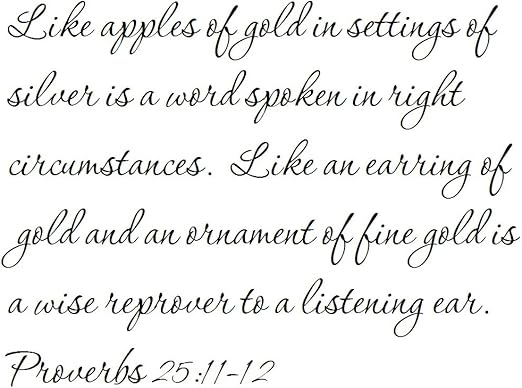 Like apples of gold in settings of
silver is a word spoken in right
circumstances. Like an earring of
gold and an ornament of fine gold is
a wise reprover to a listening ear.
Proverbs 25:11-12